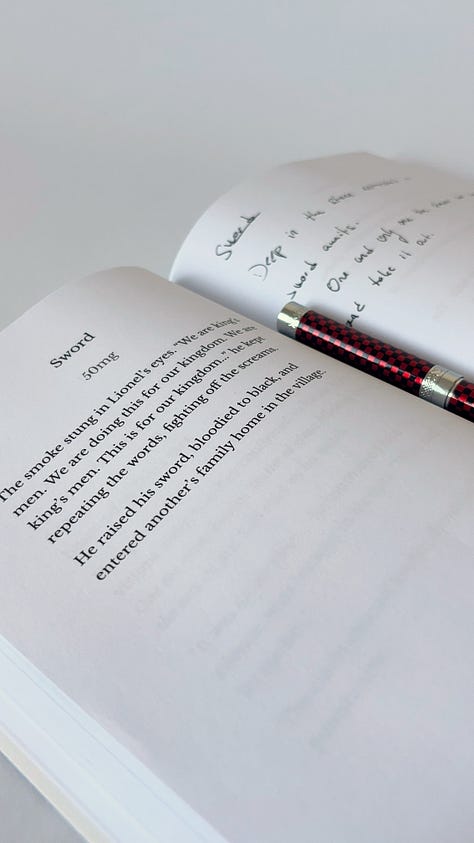 Sword
50mg
The smoke stung in Lionel's eyes. "We are king's
men. We are doing this for our kingdom. We are
king's men. This is for our kingdom," he kept
repeating the words, fighting off the screams.
He raised his sword, bloodied to black, and
entered another's family home in the village.
Sword
Deep in the stone
sword awaits.
One and only
and take it out.